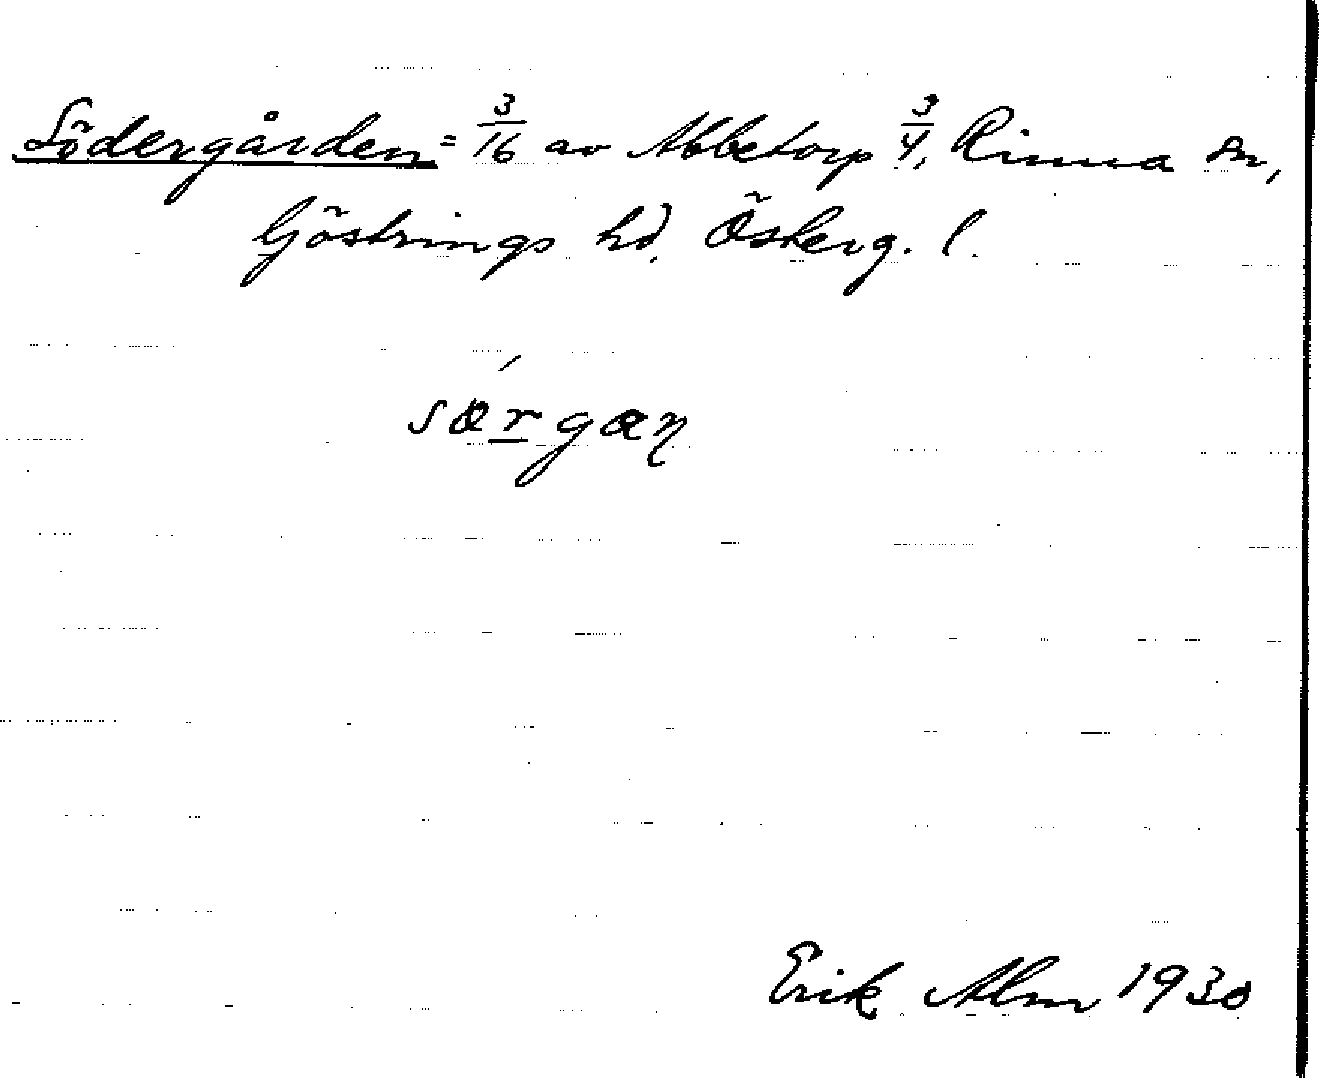 Södergården = 3/16 av Abbetorp 3/4, Rinna sn,
Göstrings hd, Österg. l.
særgæņ
Erik Alm 1930